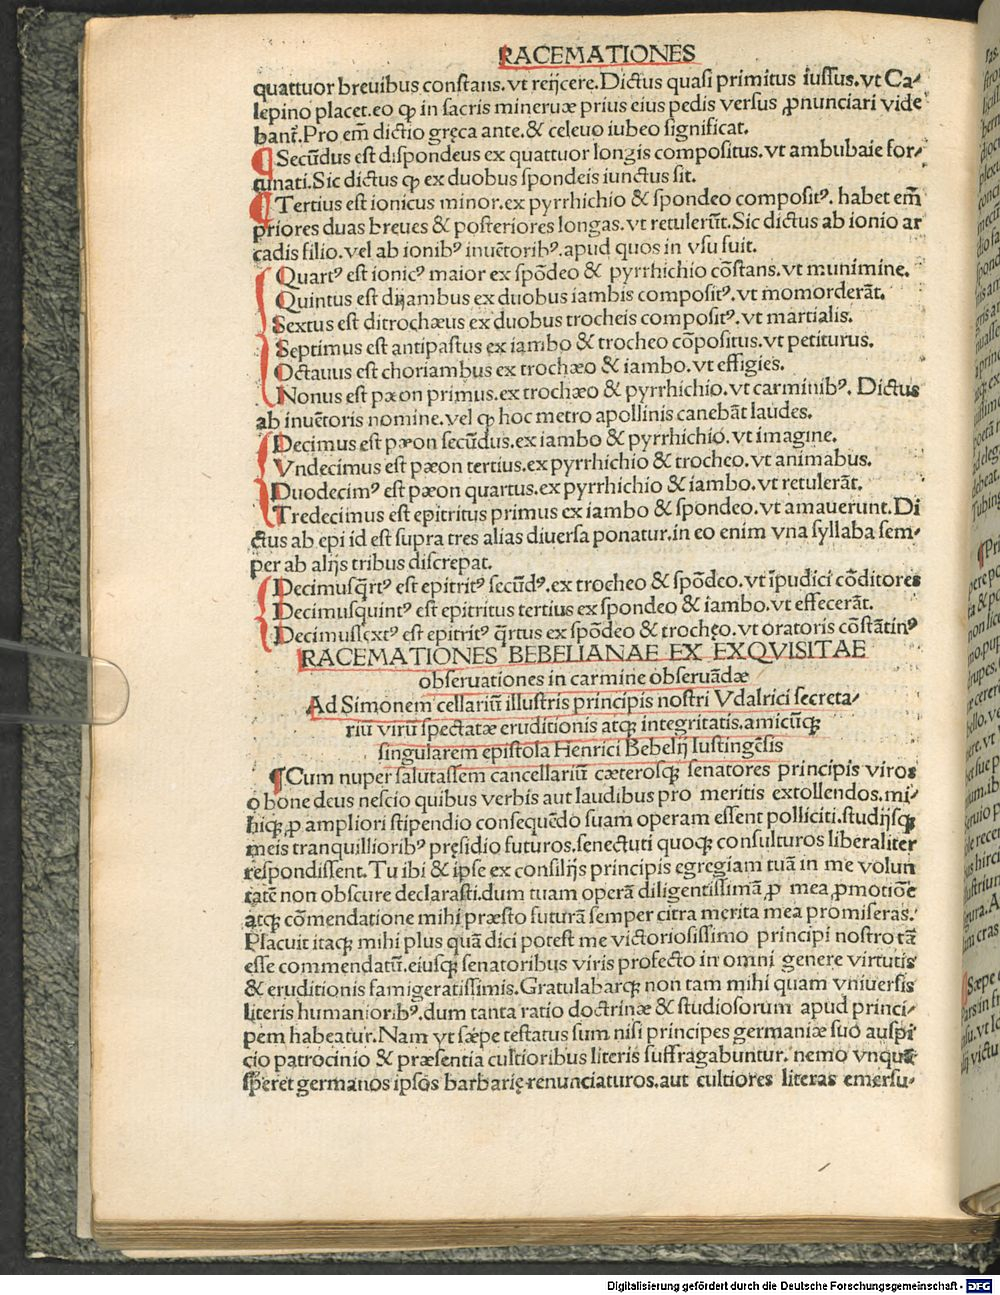 RACEMATIONES
quattuor breuibus constans. vt reijcere. Dictus quasi primitus iussus. vt Ca⸗
lepino placet. eo ꝙ in sacris mineruæ prius eius pedis versus ꝓnunciari vide
banť. Pro em̄ dictio gręca ante. & celeuo iubeo significat.
¶ Secūdus est dispondeus ex quattuor longis compositus. vt ambubaie for⸗
tunati. Sic dictus ꝙ ex duobus spondeis iunctus sit.
¶ Tertius est ionicus minor. ex pyrrhichio & spondeo compositꝰ. habet em̄
priores duas breues & posteriores longas. vt retulerūt. Sic dictus ab ionio ar
cadis filio. vel ab ionibꝰ inuētoribꝰ. apud quos in vsu fuit.
Quartꝰ est ionicꝰ maior ex spōdeo & pyrrhichio cōstans. vt munimine.
Quintus est diiambus ex duobus iambis compositꝰ. vt momorderāt.
Sextus est ditrochæus ex duobus trocheis compositꝰ. vt martialis.
Septimus est antipastus ex iambo & trocheo cōpositus. vt petiturus.
Octauus est choriambus ex trochæo & iambo. vt effigies.
Nonus est pæon primus. ex trochæo & pyrrhichio. vt carminibꝰ. Dictus
ab inuētoris nomine. vel ꝙ hoc metro apollinis canebāt laudes.
Decimus est pæon secūdus. ex iambo & pyrrhichio. vt imagine.
Vndecimus est pæon tertius. ex pyrrhichio & trocheo. vt animabus.
Duodecimꝰ est pæon quartus. ex pyrrhichio & iambo. vt retulerāt.
Tredecimus est epitritus primus ex iambo & spondeo. vt amauerunt. Di
ctus ab epi id est supra tres alias diuersa ponatur. in eo enim vna syllaba sem⸗
per ab alijs tribus discrepat.
Decimusq̄rtꝰ est epitritꝰ secūdꝰ. ex trocheo & spōdeo. vt īpudici cōditores
Decimusquintꝰ est epitritus tertius ex spondeo & iambo. vt effecerāt.
Decimussextꝰ est epitritꝰ q̄rtus ex spōdeo & trochęo. vt oratoris cōstātinꝰ
RACEMATIONES BEBELIANAE EX EXQVISITAE
obseruationes in carmine obseruādæ
Ad Simonem cellariū illustris principis nostri Vdalrici secreta⸗
riū virū spectatæ eruditionis atqꝫ integritatis. amicūqꝫ
singularem epistola Henrici Bebelij Iustingēsis
¶ Cum nuper salutassem cancellariū cæterosqꝫ senatores principis viros
o bone deus nescio quibus verbis aut laudibus pro meritis extollendos. mi⸗
hiqꝫ ꝓ ampliori stipendio consequēdo suam operam essent polliciti. studijsqꝫ
meis tranquillioribꝰ pręsidio futuros. senectuti quoqꝫ consulturos liberaliter
respondissent. Tu ibi & ipse ex consilijs principis egregiam tuā in me volun
tatē non obscure declarasti. dum tuam operā diligentissimā ꝓ mea ꝓmotiōe
atqꝫ cōmendatione mihi præsto futurā semper citra merita mea promiseras.
Placuit itaqꝫ mihi plus quā dici potest me victoriosissimo principi nostro tā
esse commendatū. eiusqꝫ senatoribus viris profecto in omni genere virtutis
& eruditionis famigeratissimis. Gratulabarqꝫ non tam mihi quam vniuersis
literis humanioribꝰ. dum tanta ratio doctrinæ & studiosorum apud princi⸗
pem habeatur. Nam vt sæpe testatus sum nisi principes germaniæ suo auspi
cio patrocinio & præsentia cultioribus literis suffragabuntur. nemo vnquā
speret germanos ipsos barbarię renunciaturos. aut cultiores literas emersu⸗
Digitalisierung gefördert durch die Deutsche Forschungsgemeinschaft - DFG